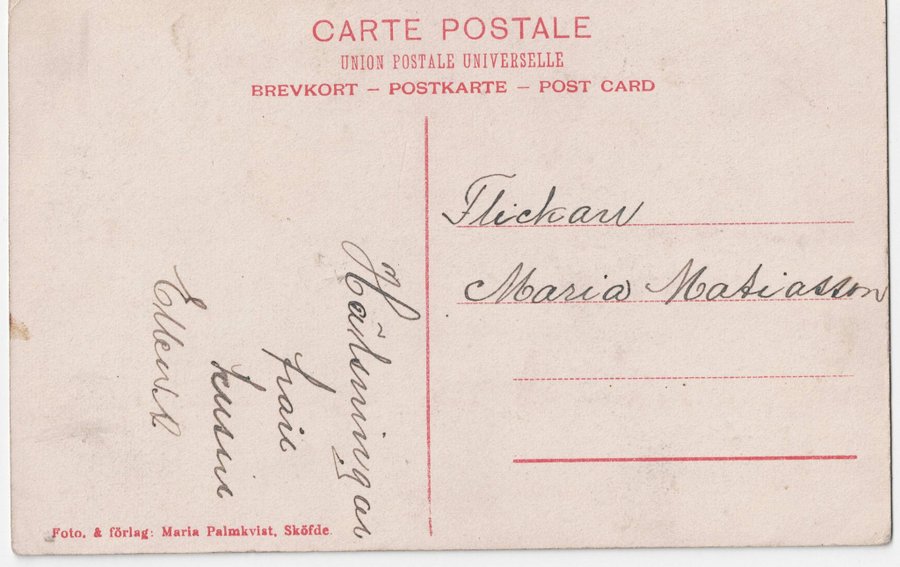 CARTE POSTALE
UNION POSTALE UNIVERSELLE
BREVKORT – POSTKARTE – POST CARD
Hälsningar
från
kusin
Ellen
Flickan
Maria Matiasson
Foto. & förlag: Maria Palmkvist, Sköfde.